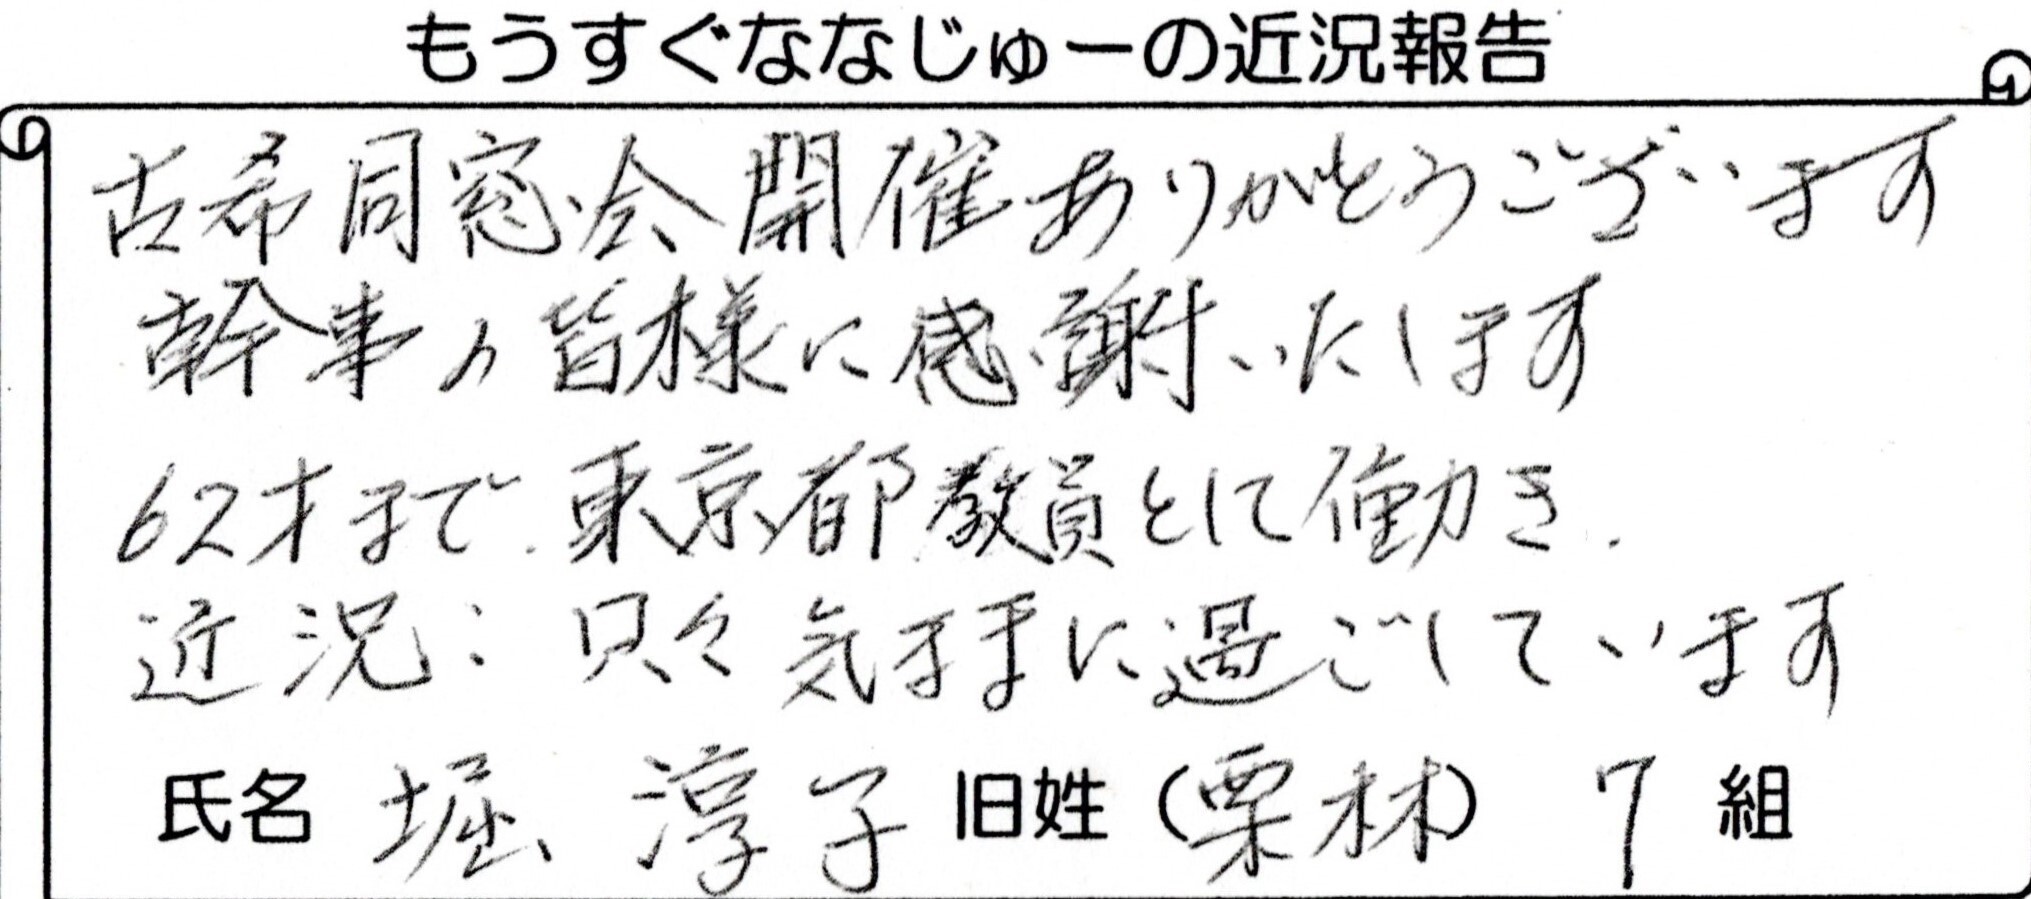 もうすぐななじゅーの近況報告
古希同窓会開催ありがとうございます
幹事の皆様に感謝いたします
62才まで東京都教員として働き.
近況:只々気ままに過ごしています
氏名 堀 淳子 旧姓(栗林) 7 組